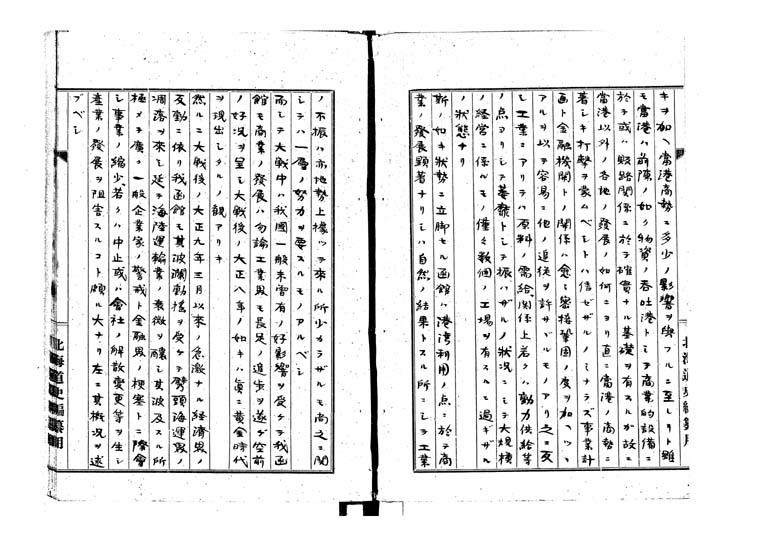 キヲ加ヘ當港商勢ニ多少ノ影響ヲ與フルニ至レリト雖
モ當港ハ前陳ノ如ク物資ノ呑吐港トシテ商業的設備ニ
於テ或ハ販路関係ニ於テ確實ナル基礎ヲ有スルカ故ニ
當港以外ノ各地ノ發展ノ如何ニヨリ直ニ當港ノ商勢ニ
著シキ打撃ヲ蒙ムベシトハ信ゼザルノミナラズ事業計
画ト金融機関トノ関係ハ愈々密接鞏固ノ度ヲ加ヘツヽ
アルヲ以テ容易ニ他ノ追従ヲ許サヾルモノアリ之ニ反
シ工業ニアリテハ原料ノ需給関係上若クハ動力供給等
ノ点ヨリシテ萎靡トシテ振ハザルノ状況ニシテ大規模
ノ経営ニ係ルモノ僅々数個ノ工場ヲ有スルニ過ギザル
ノ状態ナリ
斯ノ如キ状勢ニ立脚セル函館ハ港湾利用ノ点ニ於テ商
業ノ發展顕著ナリシハ自然ノ結果トスル所ニシテ工業
ノ不振ハ亦地勢上據ツテ来ル所少カラザルモ尚之ニ関
シテハ一層ノ努力ヲ要スルモノアルベシ
而シテ大戦中ハ我國一般未曽有ノ好影響ヲ受ケテ我函
館モ商業ノ發展ハ勿論工業界モ長足ノ進歩ヲ遂ゲ空前
ノ好况ヲ呈シ大戦後ノ大正八年ノ如キハ眞ニ黄金時代
ヲ現出シタルノ観アリキ
然ルニ大戦後ノ大正九年三月以来ノ急激ナル経済界ノ
反動ニ依リ我函館モ其波瀾動揺ヲ受ケテ劈頭海運界ノ
凋落ヲ来シ延テ海陸運輸業ノ衰微ヲ釀シ其波及スル所
極メテ廣ク一般企業家ノ警戒ト金融界ノ梗塞トニ際會
シ事業ノ縮少若クハ中止或ハ會社ノ解散変更等ヲ生シ
産業ノ發展ヲ阻害スルコト頗ル大ナリ左ニ其概况ヲ述
ブベシ
北海道史編纂用
北海道史編纂用